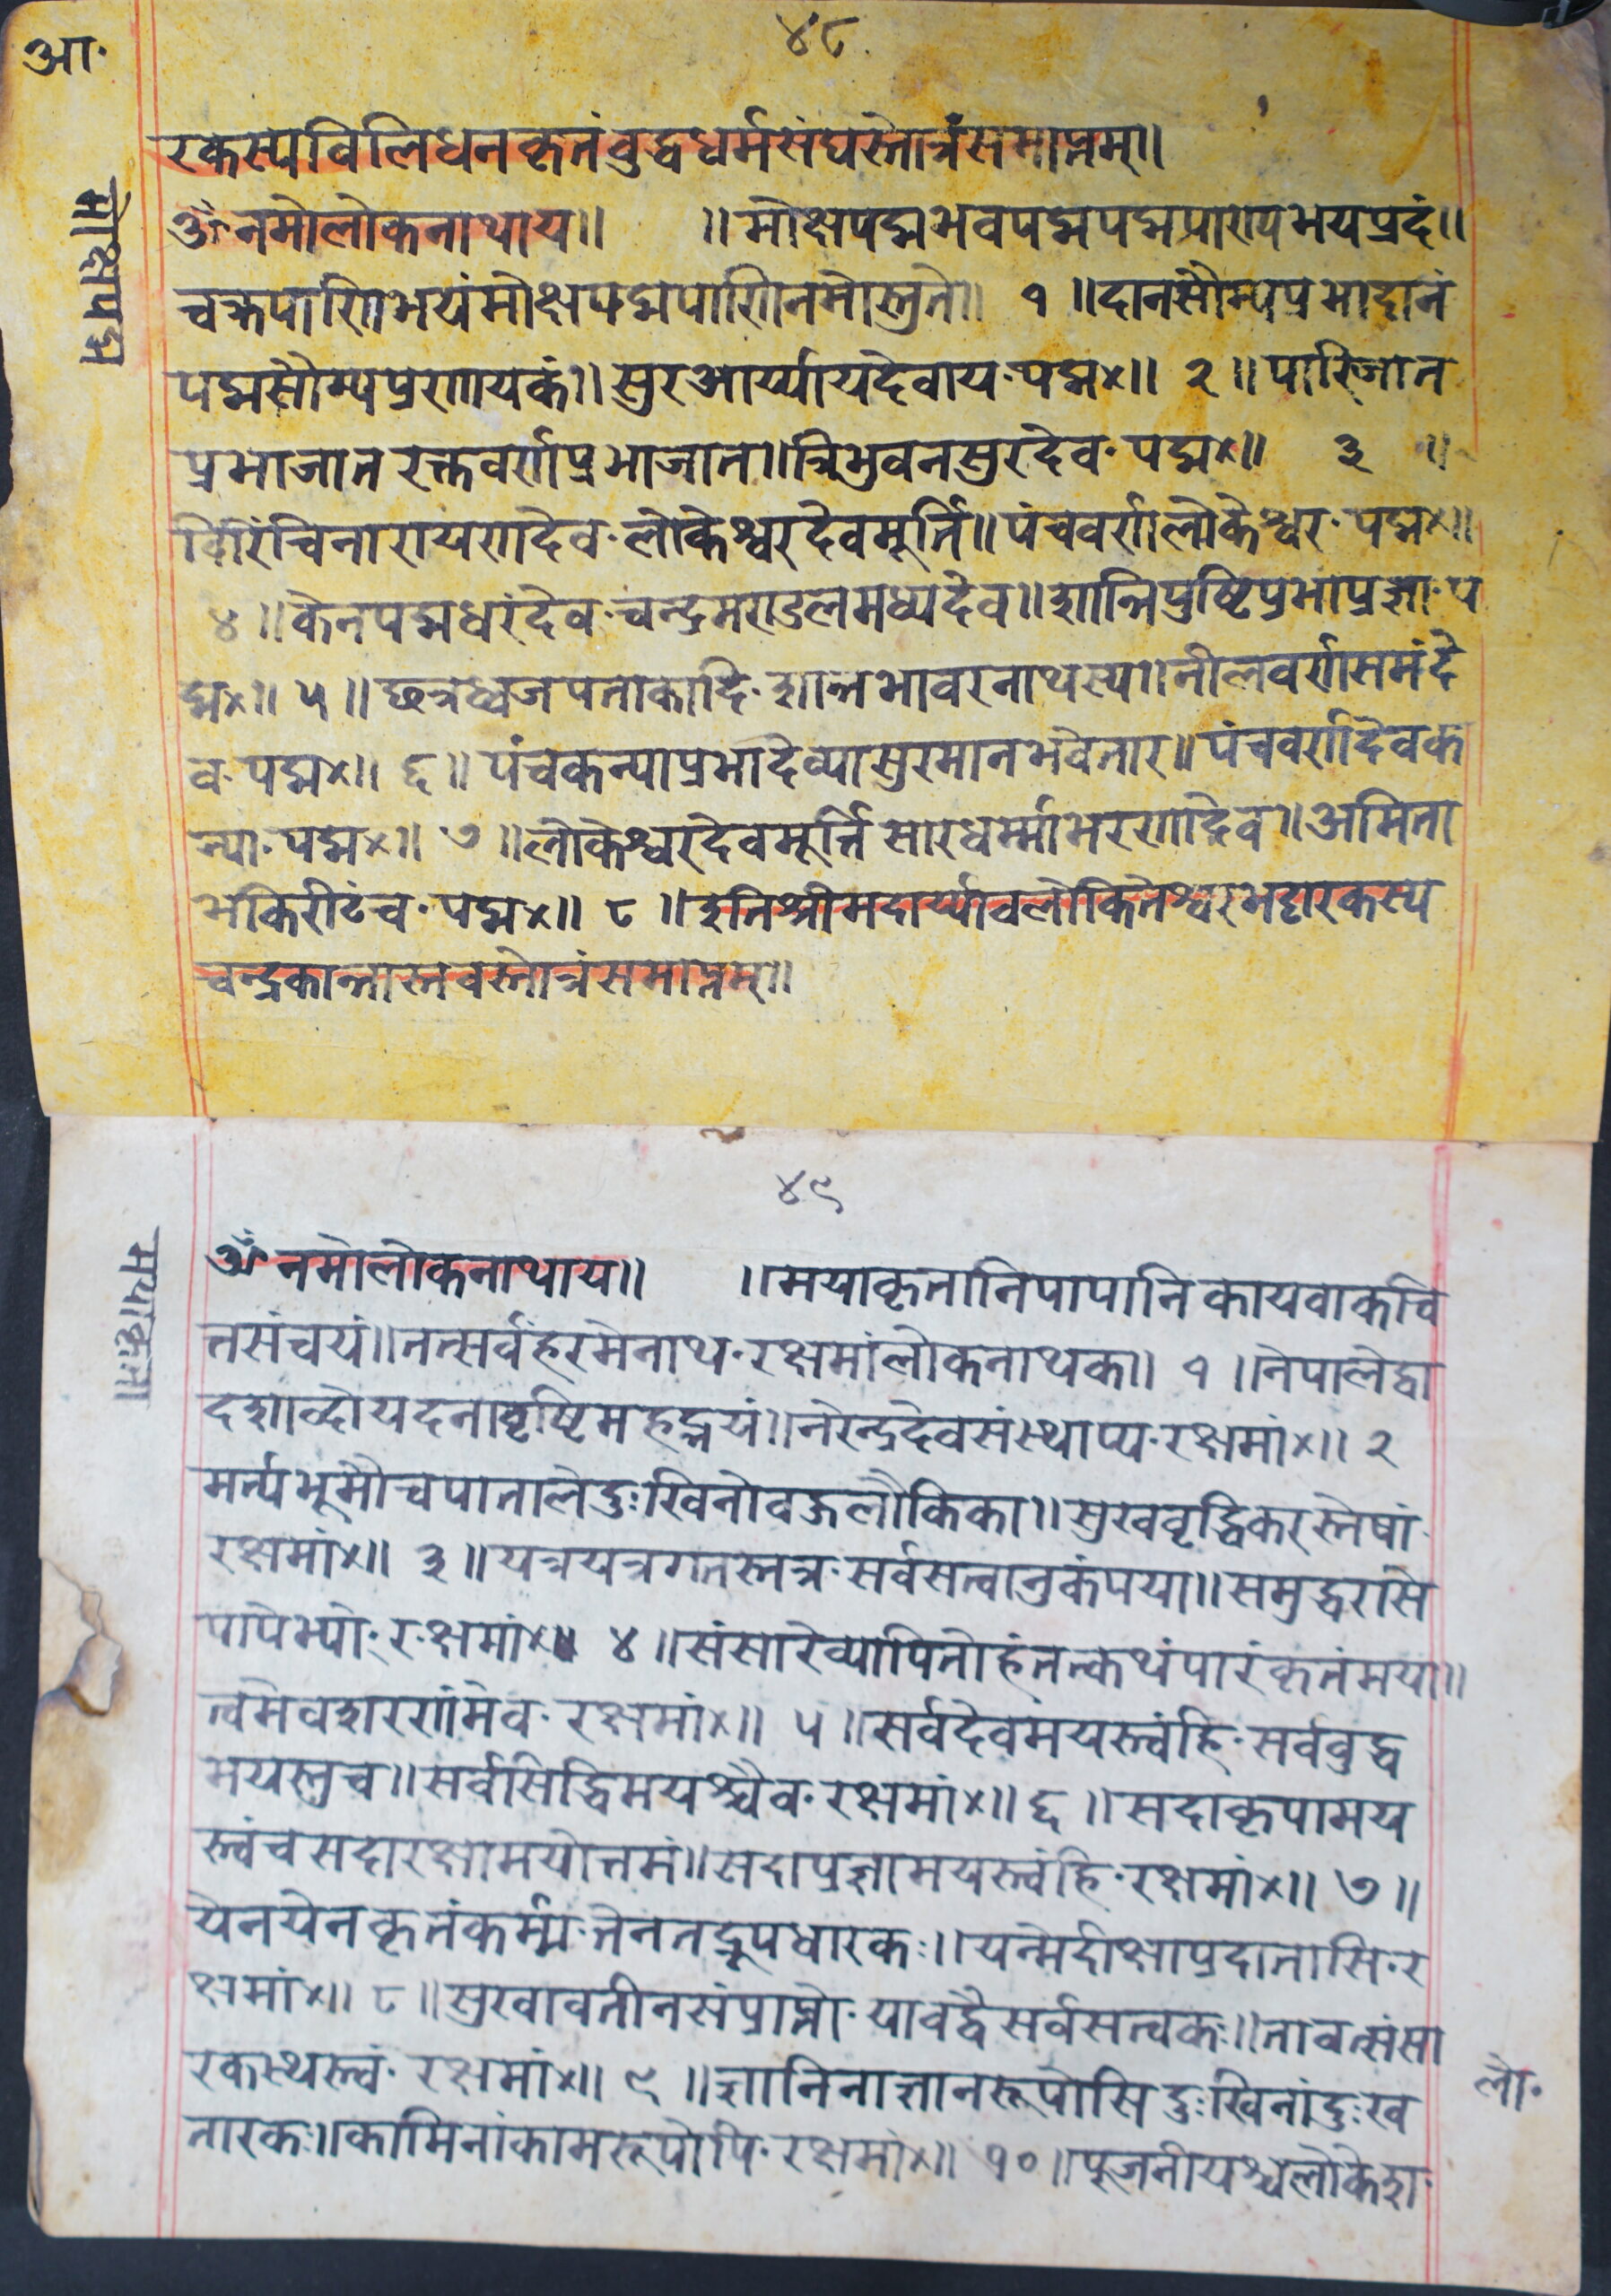 ४८
आ॰
रकस्यविलिधनकृतंबुद्धधर्मसंघस्तोत्रंसमाप्तम्॥
मोक्षपद्म
ॐनमोलोकनाथाय॥ ॥मोक्षपद्मभवपद्मपद्मपाणयभयप्रदं॥
चक्रपाणिभयंमोक्षपद्मपाणिनमोस्तुते॥ १ ॥दानसौम्यप्रभादानं
पद्मसौम्यप्रणायकं॥सुरआर्य्यायदेवाय॰पद्म×॥ २ ॥पारिजात
प्रभाजातरक्तवर्णप्रभाजात॥त्रिभुवनसुरदेव॰पद्म×॥ ३ ॥
विरिंचिनारायणदेव॰लोकेश्वरदेवमूर्त्ति॥पंचवर्णलोकेश्वर॰पद्म×॥
४ ॥केनपद्मधरंदेव॰चन्द्रमण्डलमध्यदेव॥शान्तिपुष्टिप्रभाप्रज्ञा॰प
द्म×॥ ५ ॥छत्रध्वजपताकादि॰शान्तभावरनाथस्य॥नीलवर्णसमंदे
व॰पद्म×॥ ६ ॥पंचकन्याप्रभादेव्यासुरमानभवेतार॥पंचवर्णदेवक
न्या॰पद्म×॥ ७ ॥लोकेश्वरदेवमूर्त्तिसारधर्म्माभरणदेव॥अमिता
भकिरीटंच॰पद्म×॥ ८ ॥इतिश्रीमदार्य्यावलोकितेश्वरभट्टारकस्य
चन्द्रकान्तास्तवस्तोत्रंसमाप्तम्॥
४९
मयाकृता
ॐनमोलोकनाथाय॥ ॥मयाकृतानिपापानिकायवाकचि
त्तसंचयं॥तत्सर्वंहरमेनाथ॰रक्षमांलोकनाथक॥ १ ॥नेपालेद्वा
दशाब्दोयदनावृष्टिमहद्भयं॥नरेन्द्रदेवसंस्थाप्य॰रक्षमां×॥ २
मर्त्यभूमौचपातालेदुःखिनोवज्रलौकिका॥सुखवृद्धिकरस्तेषां॰
रक्षमां×॥ ३ ॥यत्रयत्रगतस्तत्र॰सर्वसत्वानुकंपया॥समुद्धरासि
पापेभ्यो॰रक्षमां×॥ ४ ॥संसारेव्यापितोहंतत्कथंपारंकृतंमया॥
त्वमेवशरणंमेव॰रक्षमां×॥ ५ ॥सर्वदेवमयस्त्वंहि॰सर्वबुद्ध
मयस्तुच॥सर्वसिद्धिमयश्चैव॰रक्षमां×॥ ६ ॥सदाकृपामय
स्त्वंचसदारक्षामयोत्तमं॥सदाप्रज्ञामयस्त्वंहि॰रक्षमां×॥ ७ ॥
येनयेनकृतंकर्म्म॰तेनतद्रूपधारकः॥यन्मेर्दाक्षाप्रदातासि॰र
क्षमां×॥ ८ ॥सुखावतीनसंप्राप्तो॰यावद्वैसर्वसत्वकः॥तावत्संसा
रकास्थस्त्वं॰रक्षमां×॥ ९ ॥ज्ञानिनाज्ञानरूपोसिदुःखिनांदुःख
लो॰
तारकः॥कामिनांकामरूपोपि॰रक्षमां×॥ १० ॥पूजनीयश्चलोकेश॰